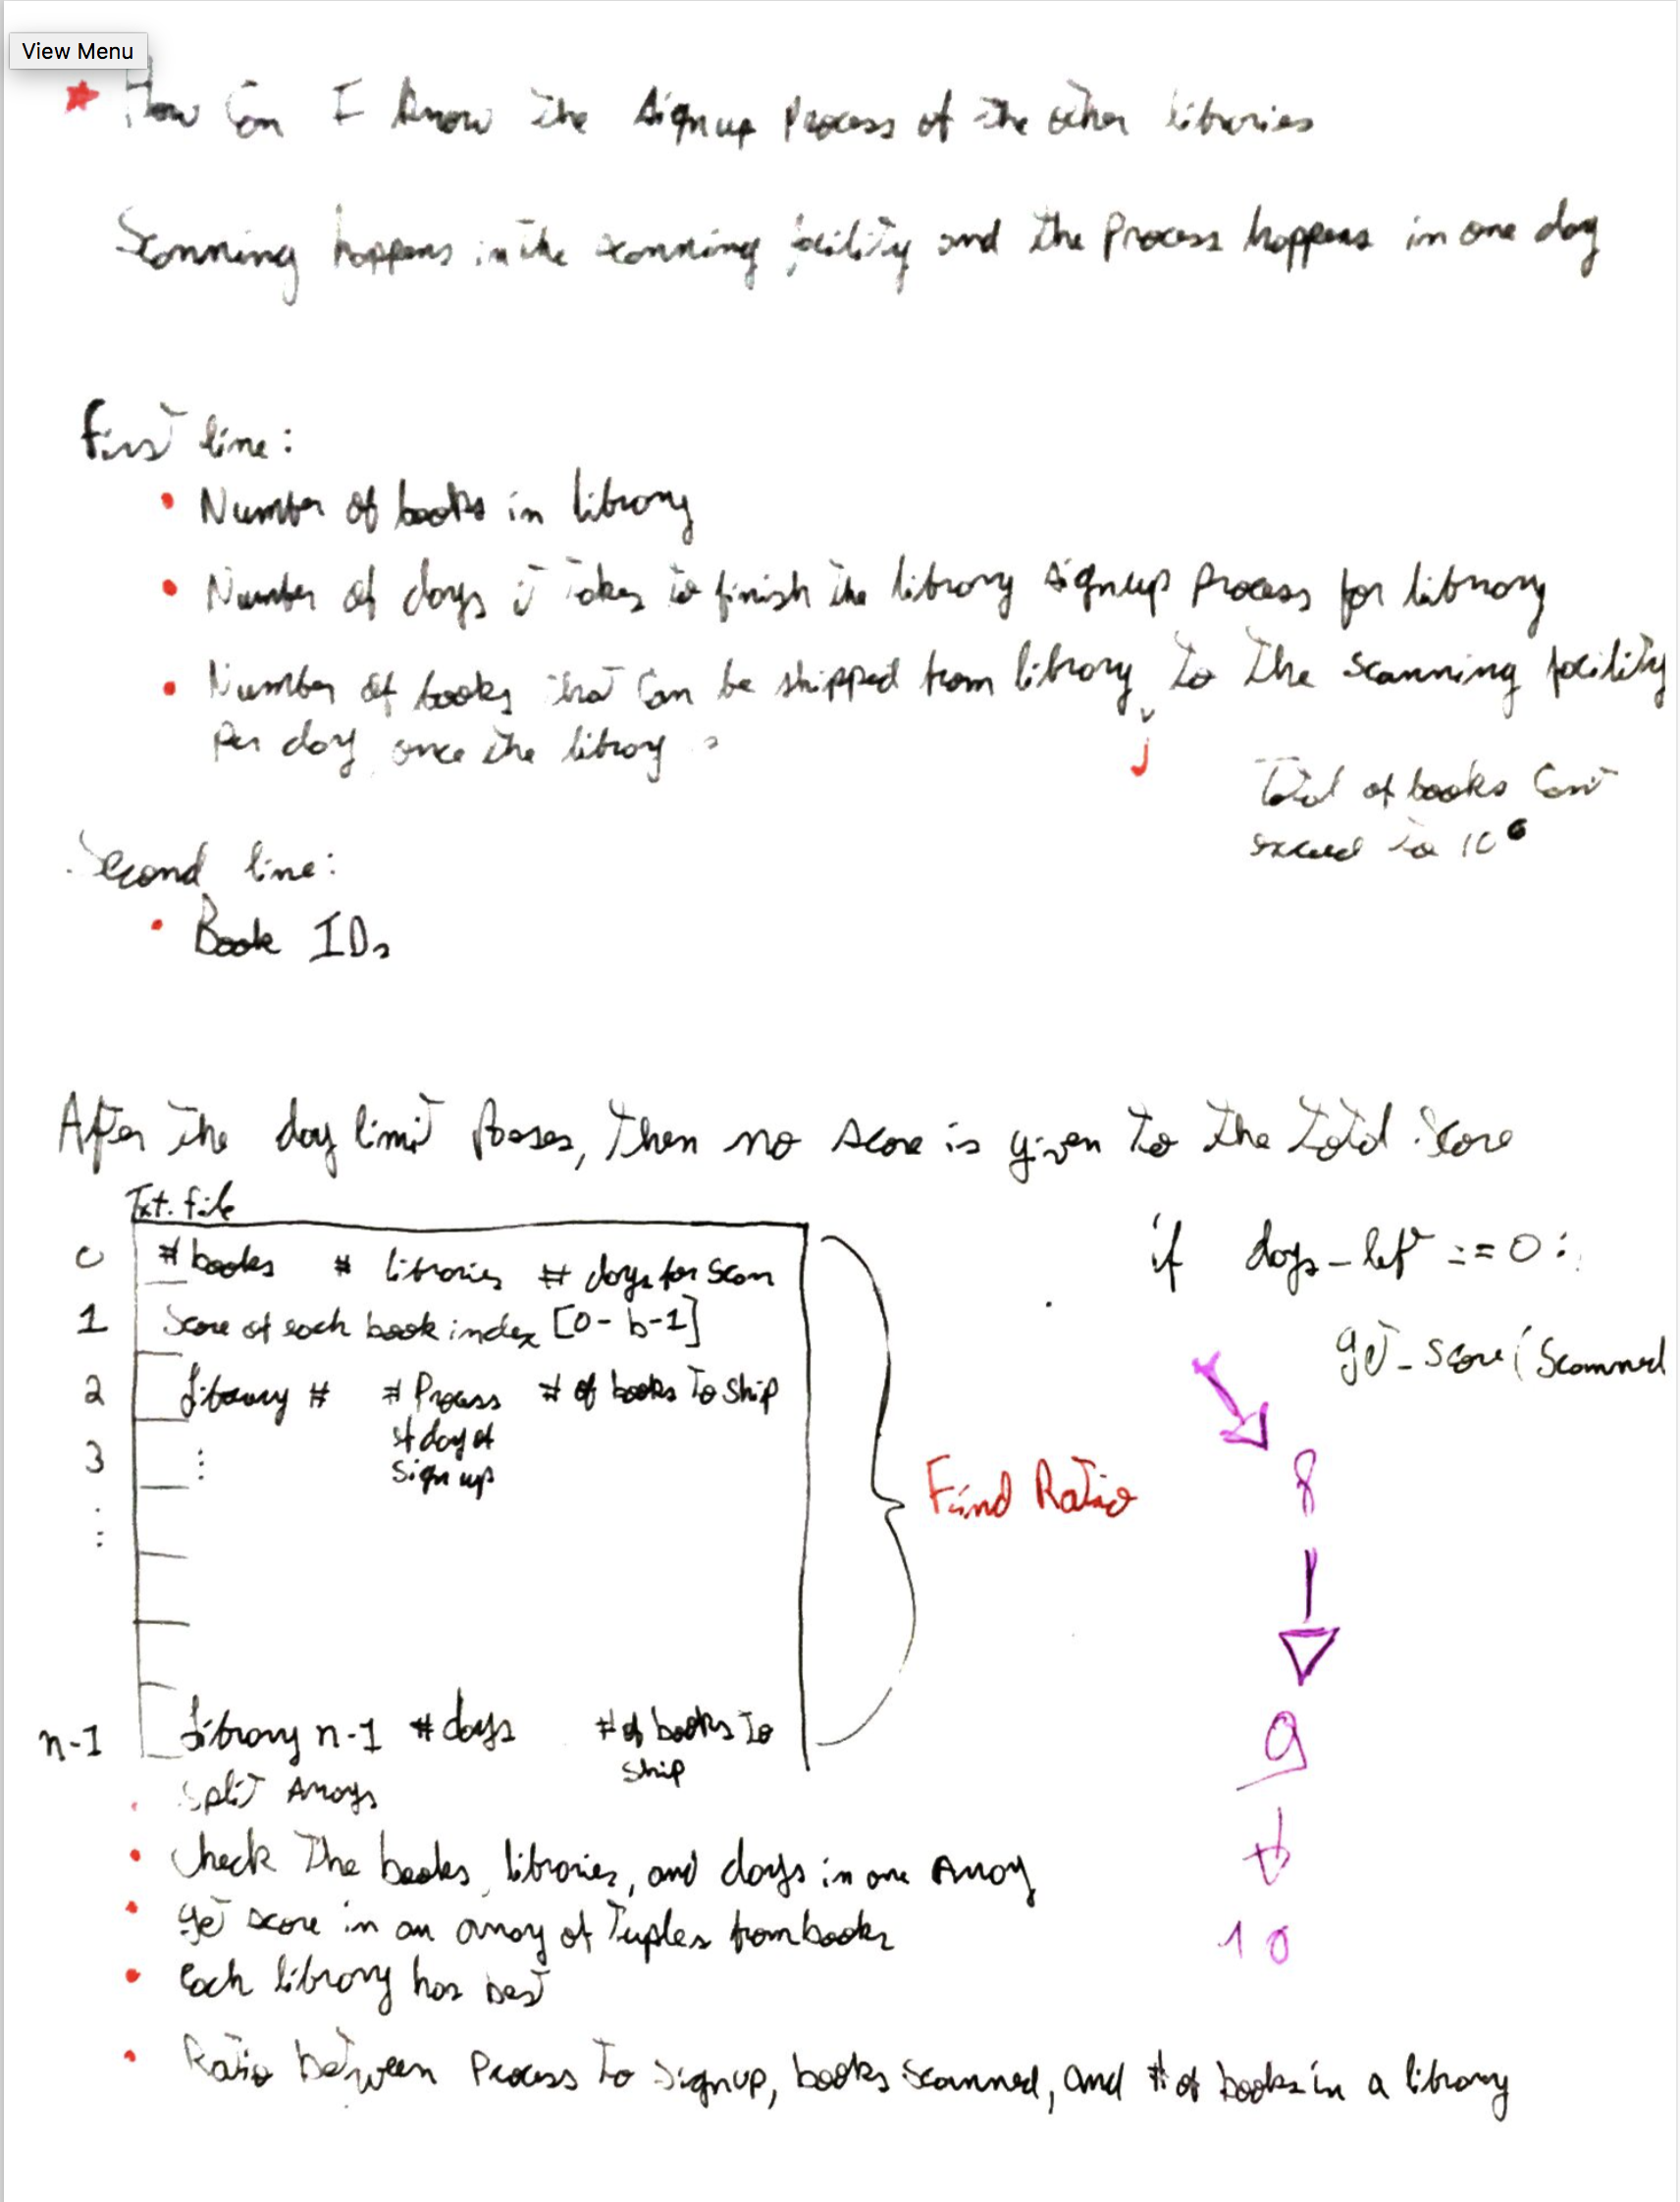 View Menu
How Can I know the signup Process of the other libraries
Scanning happens in the scanning facility and the Process happens in one day
First line:
• Number of books in library
• Number of days it takes to finish the library signup Process for library
• Number of books that can be shipped from library to the scanning facility
Per day once the library
Total of books Can't
exceed to 10⁶
Second line:
• Book IDs
After the day limit Passes, then no score is given to the total Score
Txt. file
0 # books # libraries # days for Scan
1 Score of each book index [0 - b-1]
2 Library # # Process # of books to ship
of day of
sign up
3 ⋮
⋮
n-1 Library n-1 # days # of books to
ship
Find Ratio
if days_left == 0:
get_score(Scanned
8
9
10
• Split Arrays
• Check the books, libraries, and days in one Array
• get score in an array of Tuples from books
• Each library has
• Ratio between Process to signup, books scanned, and # of books in a library